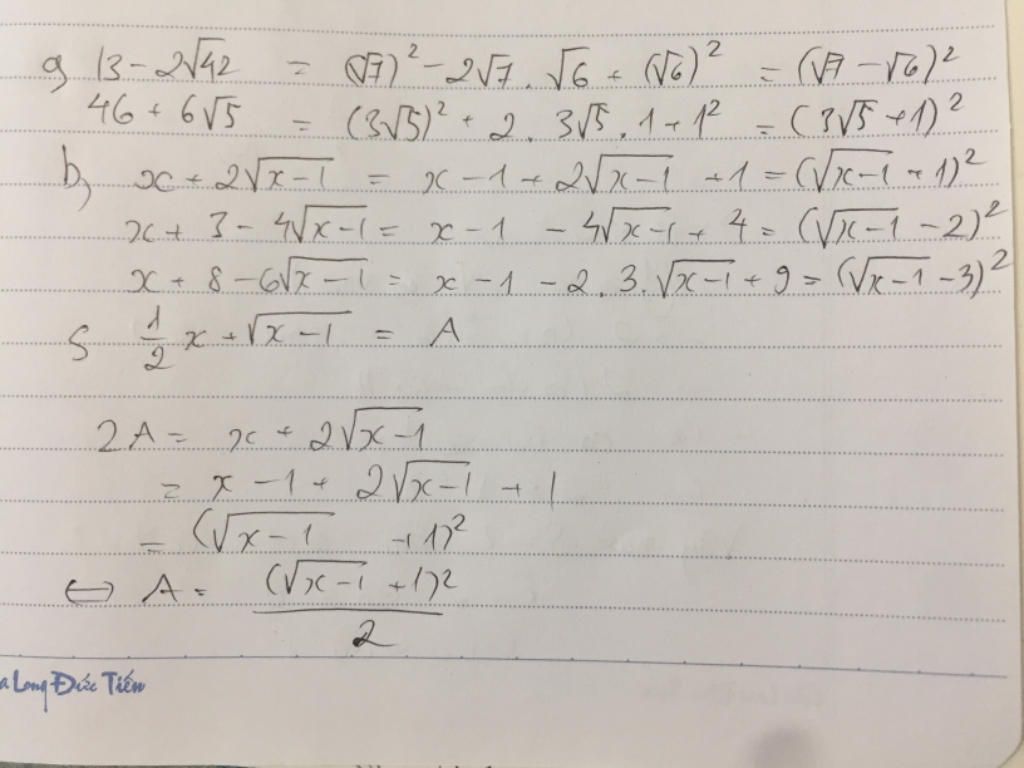 a) 13 - 2√42 = (√7)² - 2√7 . √6 + (√6)² = (√7 - √6)²
46 + 6√5 = (3√5)² + 2 . 3√5 . 1 + 1² = (3√5 + 1)²
b) x + 2√(x-1) = x - 1 + 2√(x-1) + 1 = (√(x-1) + 1)²
x + 3 - 4√(x-1) = x - 1 - 4√(x-1) + 4 = (√(x-1) - 2)²
x + 8 - 6√(x-1) = x - 1 - 2 . 3 . √(x-1) + 9 = (√(x-1) - 3)²
c) 1/2 x + √(x-1) = A
2A = x + 2√(x-1)
= x - 1 + 2√(x-1) + 1
= (√(x-1) + 1)²
⇔ A = (√(x-1) + 1)² / 2
a Long Đức Tiến